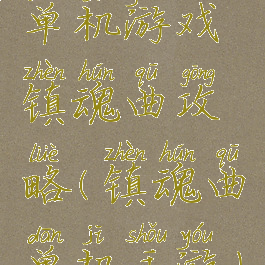 单机游戏
zhèn hún qǔ gōng
镇魂曲攻
lüè zhèn hún qǔ
略(镇魂曲
dān jī shǒu yóu
单机手游)